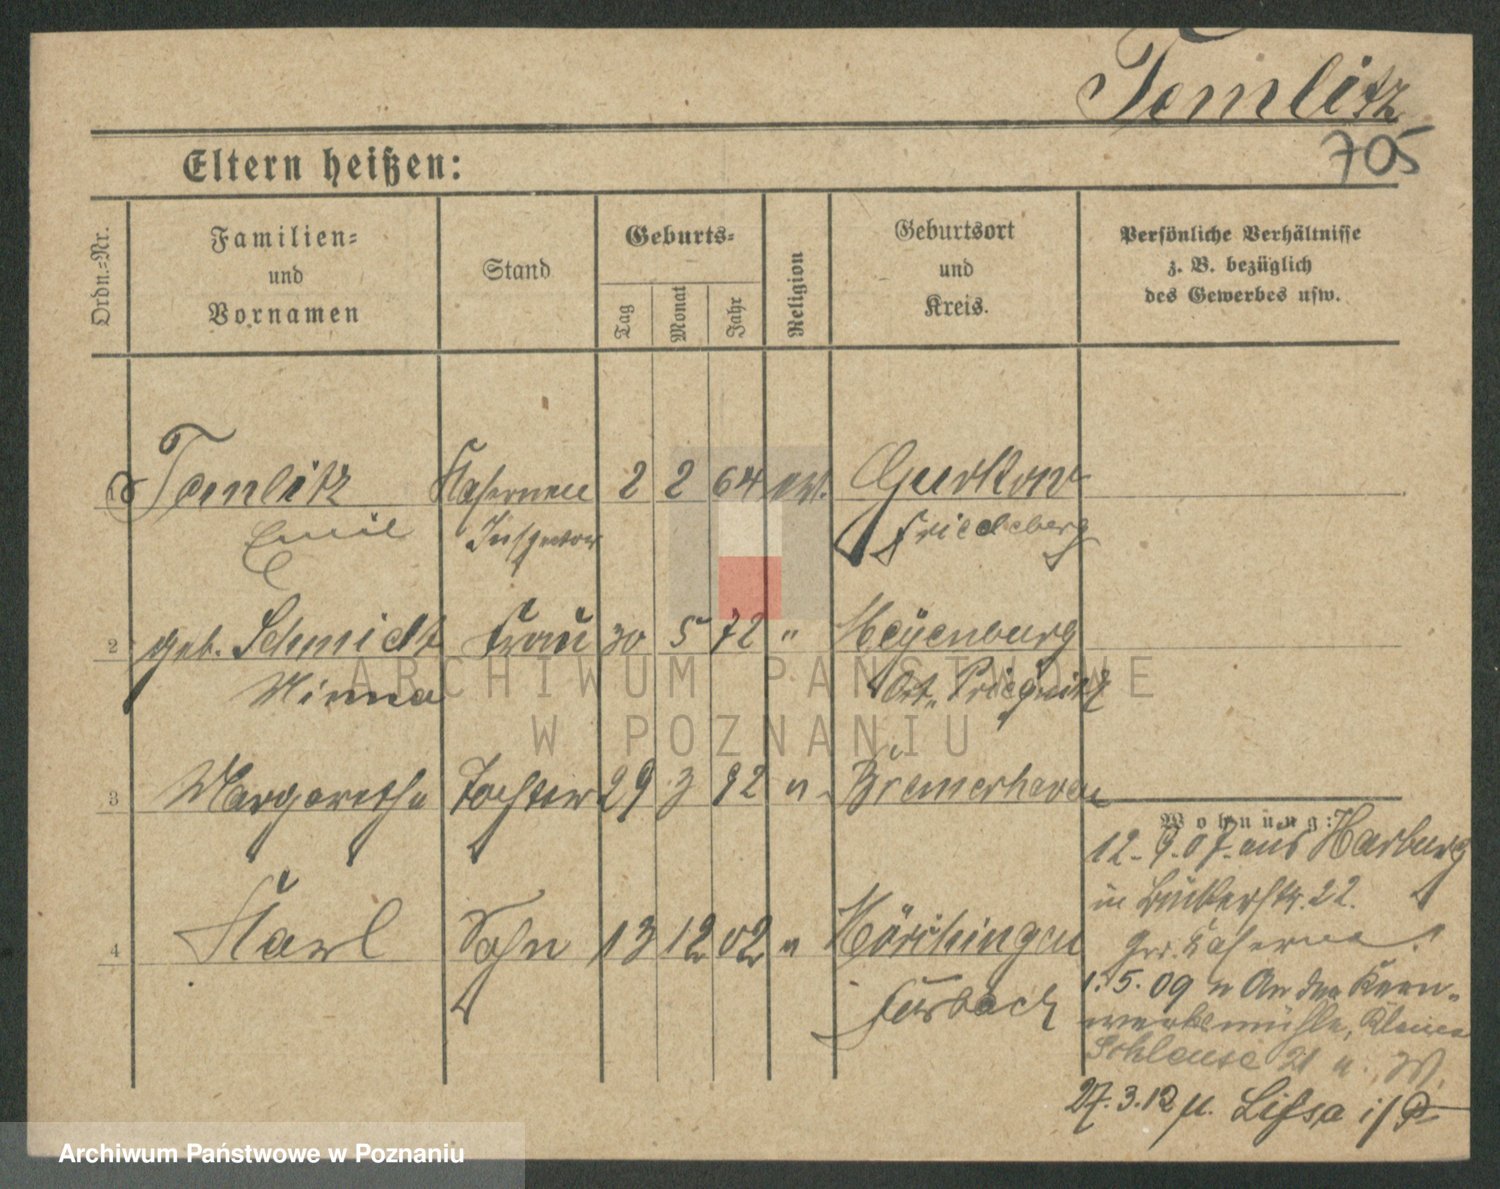 Temlitz
705
Eltern heißen:
Ordn.-Nr.
Familien-
und
Vornamen
Stand
Geburts-
Tag
Monat
Jahr
Religion
Geburtsort
und
Kreis.
Persönliche Verhältnisse
z. B. bezüglich
des Gewerbes usw.
1 Temlitz Kasernen 2 2 64 ev. Gurkow
Emil Inspektor Friedeberg
2 geb. Schmidt Frau 30 5 72 " Meyenburg
Minna Ost Priegnitz
3 Margarethe Tochter 29 3 92 " Bremerhaven
4 Karl Sohn 13 12 02 " Mörchingen
Forbach
Wohnung:
12.9.07. aus Harburg
in 22.
Gr. Kaserne
1.5.09 n An der Kern-
werksmühle, Kleine
Schleuse
27.3.12 n. Lissa i/P
ARCHIWUM PAŃSTWOWE
W POZNANIU
Archiwum Państwowe w Poznaniu